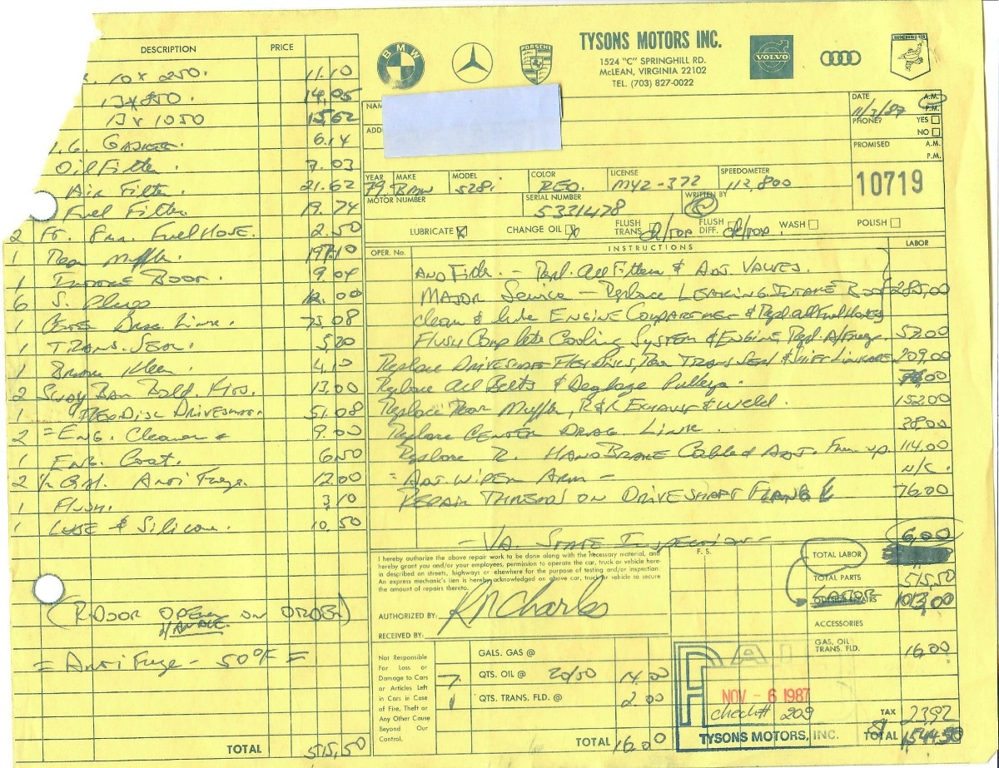 DESCRIPTION PRICE
10 x 250. 11.10
13 x 250. 14.05
13 x 1050 15.62
Gasket. 6.14
Oil Filter. 7.03
Air Filter. 21.62
Fuel Filter. 19.74
2 Ft. 8mm. Fuel Hose. 2.50
1 Rear Muffler.
1 Intake Boot. 9.04
6 S. Plugs
1 Cntr Drag Link. 75.08
1 Trans. Seal. 5.20
1 Brake Kleen. 4.10
2 Sway Bar 13.00
1 Flex Disc Driveshaft. 51.08
2 Eng. Cleaner 9.00
1 Eng. Coat. 6.50
2 1/2 Gal. Anti Freeze. 12.00
1 Flush. 3.10
1 Lube & Silicone. 10.50
(R. DOOR OPENING HANDLE ON ORDER)
= Anti Freeze - 50°F =
TOTAL 515.50
BMW
PORSCHE
TYSONS MOTORS INC.
1524 "C" SPRINGHILL RD.
McLEAN, VIRGINIA 22102
TEL. (703) 827-0022
VOLVO
NAM
ADD
DATE 11/3/87 A.M. P.M.
PHONE? YES NO
PROMISED A.M. P.M.
YEAR 79 MAKE BMW MODEL 528i COLOR RED. LICENSE MYZ-372 SPEEDOMETER 113,800
10719
MOTOR NUMBER SERIAL NUMBER 5331478 WRITTEN BY
LUBRICATE CHANGE OIL FLUSH TRANS. FLUSH DIFF. WASH POLISH
OPER. No. INSTRUCTIONS LABOR
And Filter. - Repl. All Filters & Adj. Valves.
MAJOR Service - Replace LEAKING INTAKE BOOT 285.00
Clean & lube ENGINE COMPARTMENT & Repl. all Fuel Hoses
Flush Complete Cooling System & ENGINE Repl. A/Freeze. 57.00
Replace DRIVESHAFT FLEX DISC, Rear TRANS Seal & SHIFT LINKAGE 209.00
Replace All Belts & Deglaze Pulleys.
Replace Rear Muffler, R&R Exhaust & Weld. 152.00
Replace CENTER DRAG LINK. 38.00
Replace R. HANDBRAKE Cable & ADJ. 114.00
- ADJ. WIPER ARM - N/C.
REPAIR THREADS ON DRIVESHAFT FLANGE 76.00
- VA. STATE INSPECTION - 6.00
I hereby authorize the above repair work to be done along with the necessary material, and
hereby grant you and/or your employees, permission to operate the car, truck or vehicle here
in described on streets, highways or elsewhere for the purpose of testing and/or inspection.
An express mechanic's lien is hereby acknowledged on above car, truck or vehicle to secure
the amount of repairs thereto.
F. S.
AUTHORIZED BY: RN Charles
RECEIVED BY:
TOTAL LABOR
TOTAL PARTS 515.50
1013.00
ACCESSORIES
GAS, OIL
TRANS. FLD. 16.00
TAX 23.92
TOTAL 1544.50
Not Responsible
For Loss or
Damage to Cars
or Articles Left
in Cars in Case
of Fire, Theft or
Any Other Cause
Beyond Our
Control.
GALS. GAS @
7 QTS. OIL @ 20/50 14.00
1 QTS. TRANS. FLD. @ 2.00
TOTAL 16.00
PAID
NOV - 6 1987
check# 209
TYSONS MOTORS, INC.